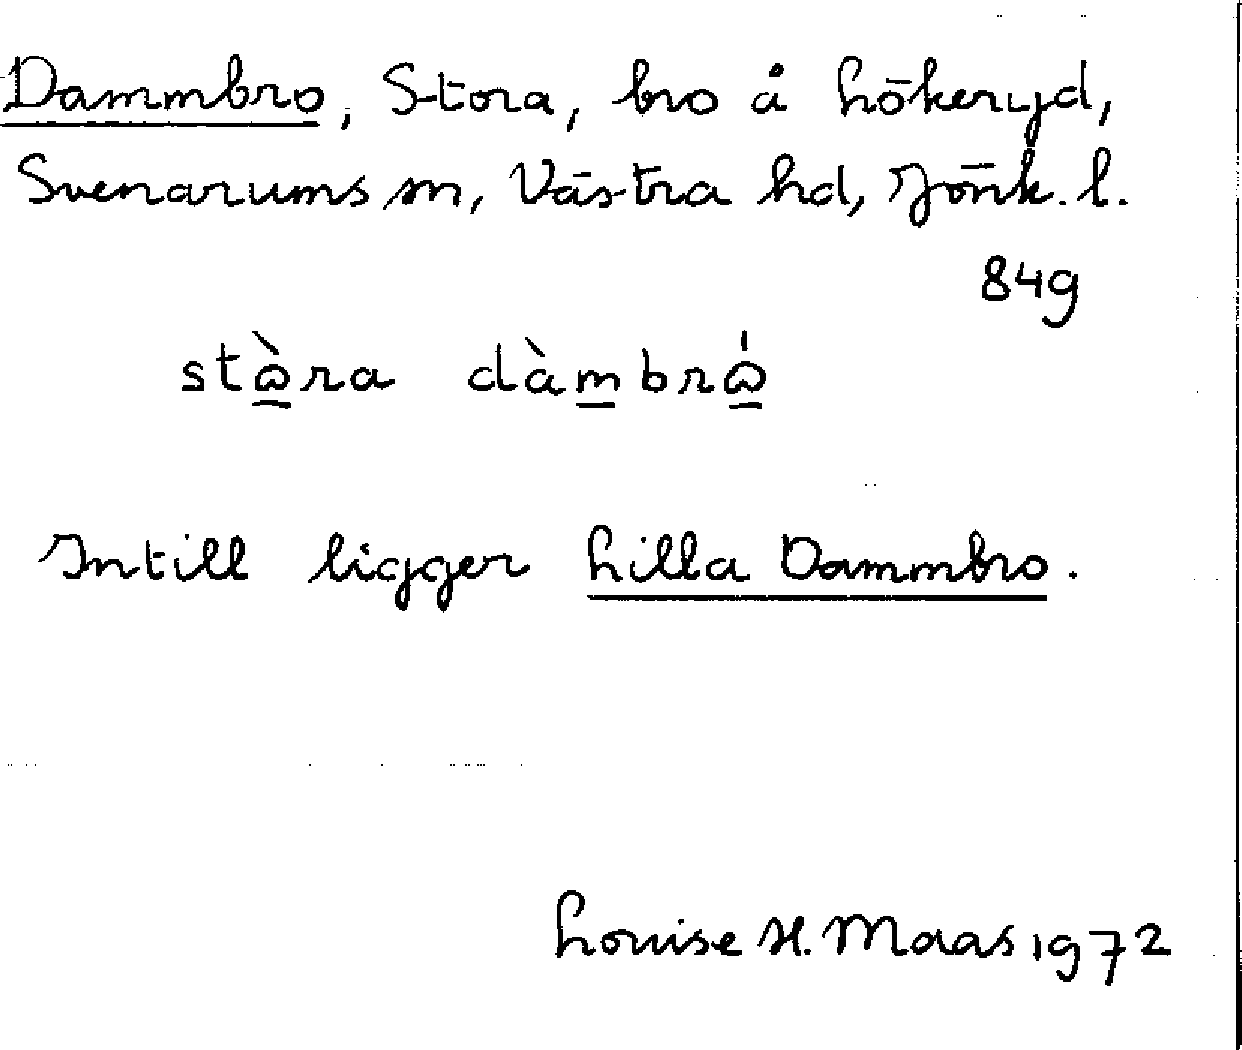 Dammbro, Stora, bro å Lökeryd,
Svenarums sn, Västra hd, Jönk. l.
849
stɷ̀ra dàm̲brɷ́
Intill ligger Lilla Dammbro.
Louise H. Maas 1972